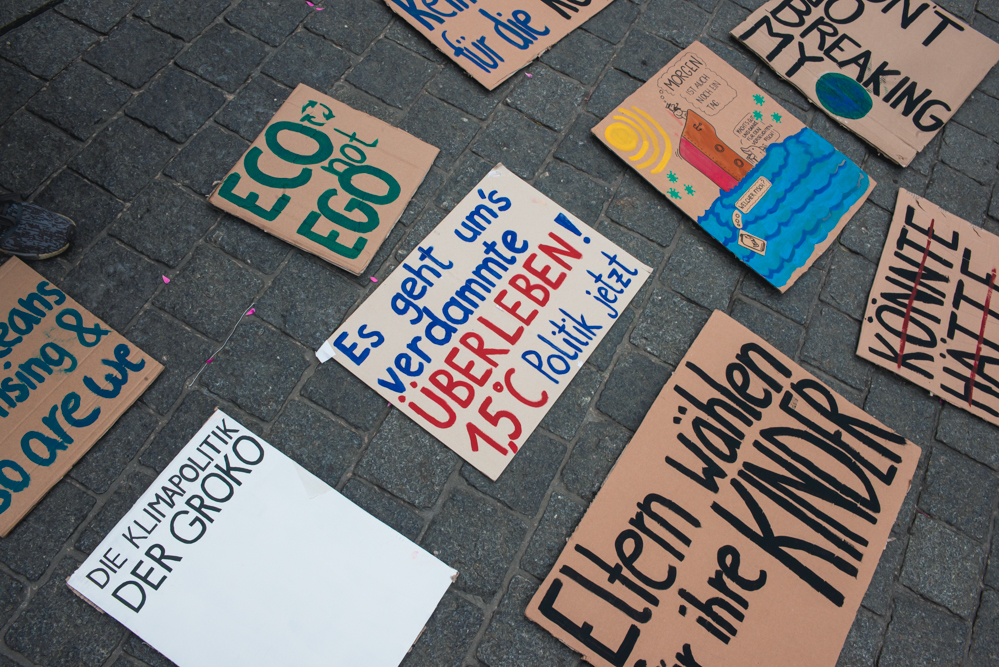 für die
DON'T
BREAKING
MY
ECO
not
EGO
MORGEN
IST AUCH
NOCH EIN
TAG
Es geht um's
verdammte
ÜBERLEBEN!
1,5°C Politik jetzt
KÖNNTE
HÄTTE
eans
ising &
so are we
DIE KLIMAPOLITIK
DER GROKO
Eltern wählen
für ihre KINDER